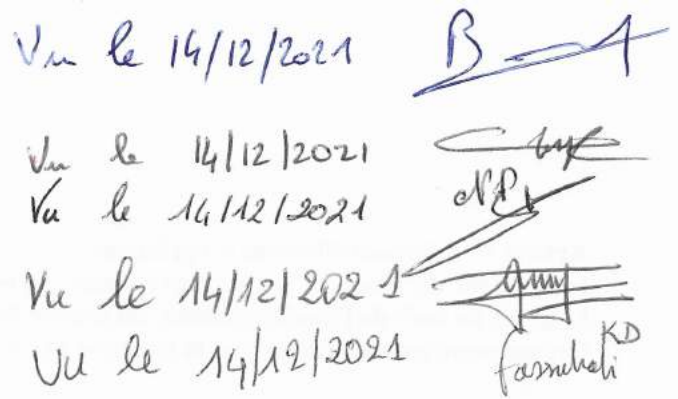 Vu le 14/12/2021
Vu le 14/12/2021
Vu le 14/12/2021 NP
Vu le 14/12/2021
Vu le 14/12/2021 KD